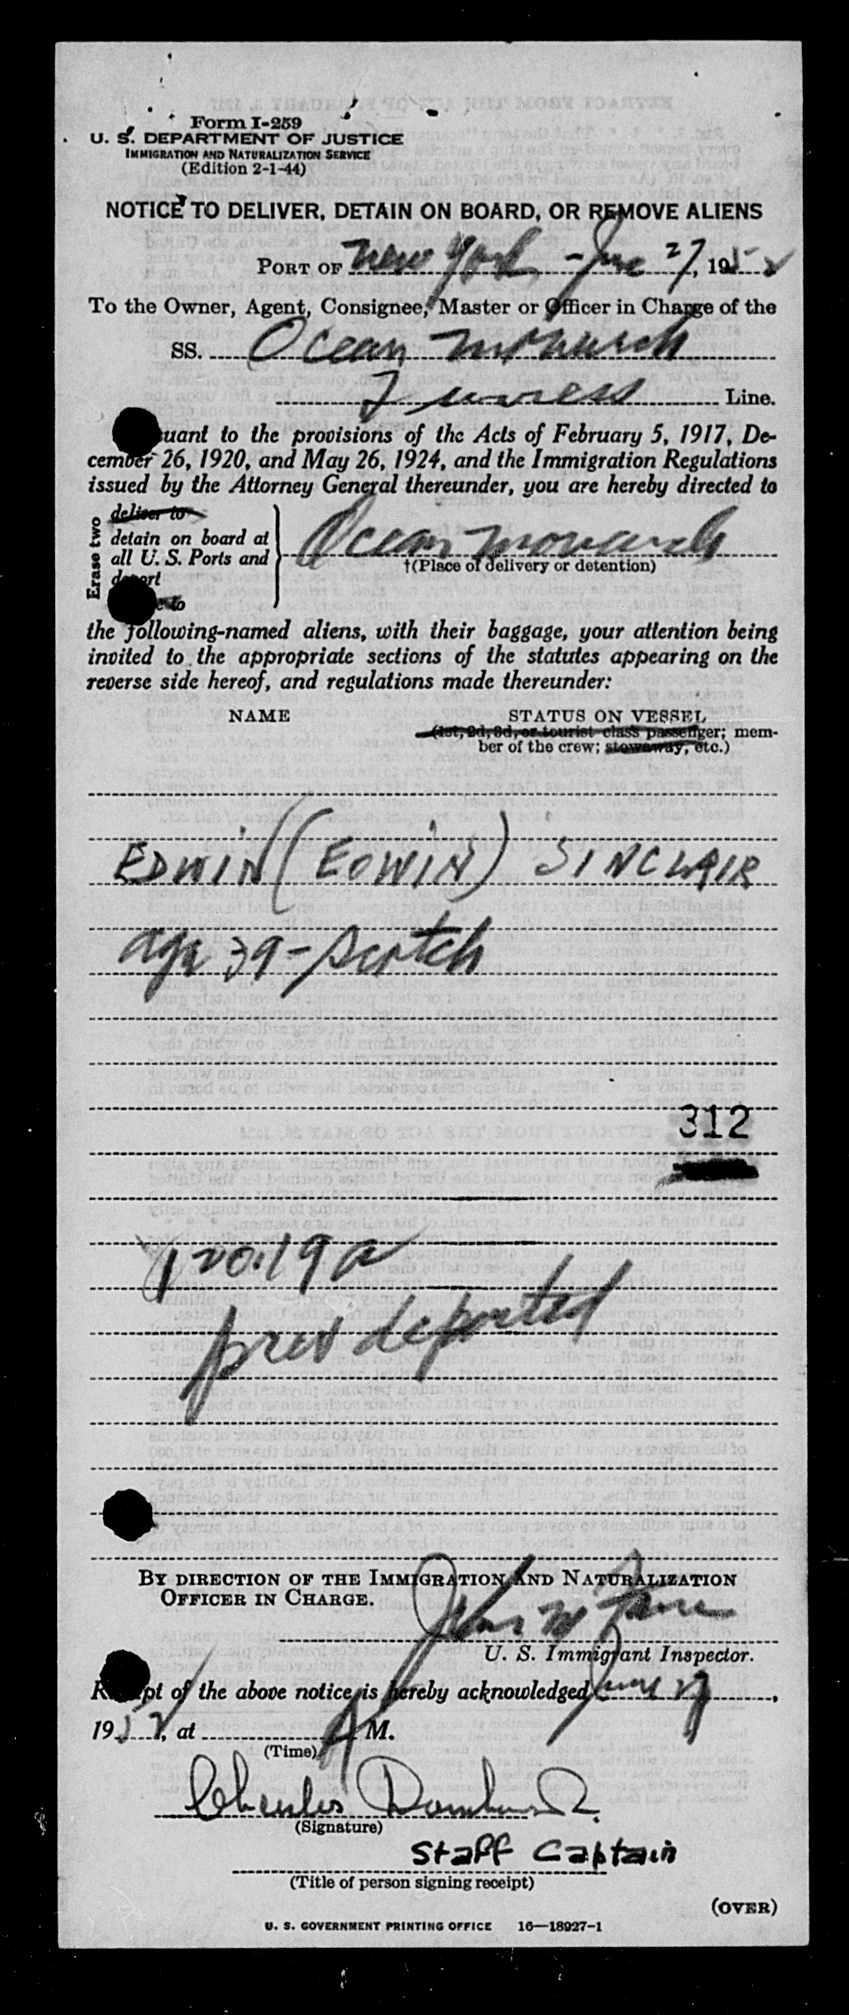 Form I-259
U. S. DEPARTMENT OF JUSTICE
IMMIGRATION AND NATURALIZATION SERVICE
(Edition 2-1-44)
NOTICE TO DELIVER, DETAIN ON BOARD, OR REMOVE ALIENS
PORT OF New York - June 27, 1952
To the Owner, Agent, Consignee, Master or Officer in Charge of the
SS. Ocean Monarch
Furness Line.
suant to the provisions of the Acts of February 5, 1917, De-
cember 26, 1920, and May 26, 1924, and the Immigration Regulations
issued by the Attorney General thereunder, you are hereby directed to
Erase two
deliver to
detain on board at
all U. S. Ports and
deport
to
Ocean Monarch
†(Place of delivery or detention)
the following-named aliens, with their baggage, your attention being
invited to the appropriate sections of the statutes appearing on the
reverse side hereof, and regulations made thereunder:
NAME STATUS ON VESSEL
(1st, 2d, 3d, or tourist class passenger; mem-
ber of the crew; stowaway, etc.)
EDWIN (EOWIN) SINCLAIR
age 39 - Scotch
312
no. 19a
prev deported
BY DIRECTION OF THE IMMIGRATION AND NATURALIZATION
OFFICER IN CHARGE.
John M
U. S. Immigrant Inspector.
Receipt of the above notice is hereby acknowledged June 27,
1952, at A M.
(Time)
Charles
(Signature)
Staff Captain
(Title of person signing receipt)
(OVER)
U. S. GOVERNMENT PRINTING OFFICE 16—18927-1